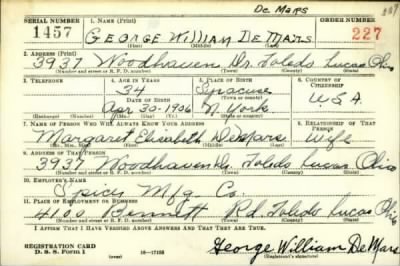 De Mars
SERIAL NUMBER 1. NAME (Print) ORDER NUMBER
1457 GEORGE WILLIAM DE MARS 227
(First) (Middle) (Last)
2. ADDRESS (Print)
3937 Woodhaven Dr. Toledo Lucas Ohio
(Number and street or R. F. D. number) (Town) (County) (State)
3. TELEPHONE 4. AGE IN YEARS 5. PLACE OF BIRTH 6. COUNTRY OF CITIZENSHIP
34 Syracuse
DATE OF BIRTH (Town or county) U S A.
Apr. 30-1906 N. York
7. NAME OF PERSON WHO WILL ALWAYS KNOW YOUR ADDRESS 8. RELATIONSHIP OF THAT PERSON
Margaret Elizabeth DeMars Wife
(Mr., Mrs., Miss) (First) (Middle) (Last)
9. ADDRESS OF THAT PERSON
3937 Woodhaven Dr. Toledo Lucas Ohio
(Number and street or R. F. D. number) (Town) (County) (State)
10. EMPLOYER'S NAME
Spicer Mfg Co.
11. PLACE OF EMPLOYMENT OR BUSINESS
4100 Bennett Rd. Toledo Lucas Ohio
(Number and street or R. F. D. number) (Town) (County) (State)
I AFFIRM THAT I HAVE VERIFIED ABOVE ANSWERS AND THAT THEY ARE TRUE.
REGISTRATION CARD
D. S. S. Form 1 16-17105 George William De Mars
(over) (Registrant's signature)